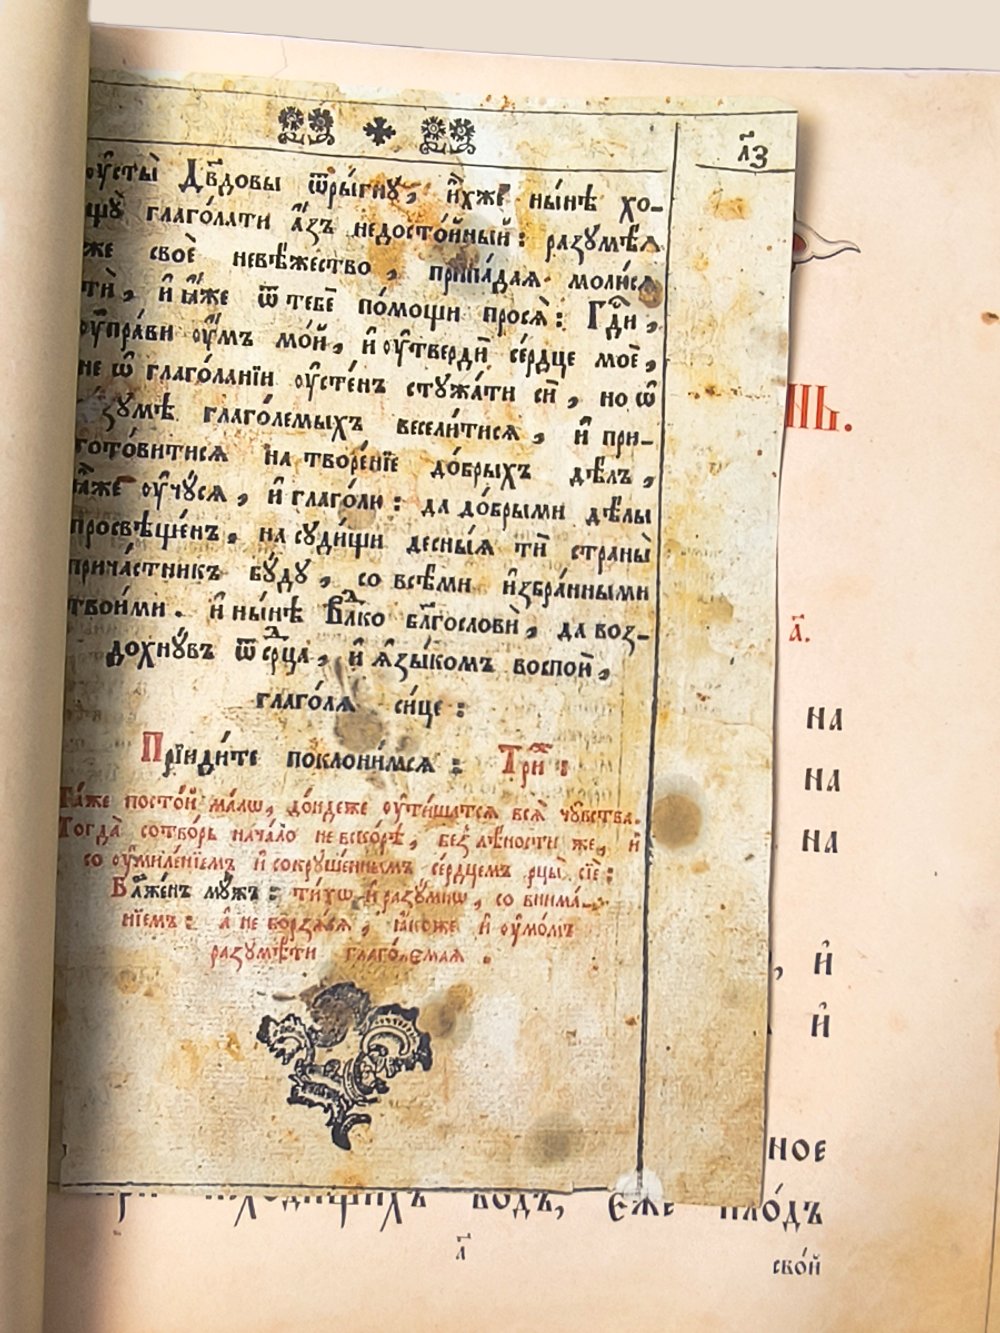 л҃з
оу҆сты̀ Дв҃довы ѿры́гну, и҆́хже ны́нѣ хо-
щꙋ̀ глаго́лати а҆́зъ недосто́йный: разꙋмѣ́ѧ
же своѐ невѣ́жество, припа́даѧ молю́сѧ
тѝ, и҆ ꙗ҆́же ѿ тебє̀ по́мощи просѧ̀: Гдⷭ҇и,
оу҆пра́ви оу҆́мъ мо́й, и҆ оу҆твердѝ се́рдце моѐ,
не ѡ҆ глаго́ланїи оу҆сте́нъ стꙋжа́ти сѝ, но ѡ҆
ра́зꙋмѣ глаго́лемыхъ весели́тисѧ, и҆ при-
гото́витисѧ на творе́нїе до́брыхъ дѣ́лъ,
ꙗ҆́же оу҆чꙋ́сѧ, и҆ глаго́лю: да до́брыми дѣ́лы
просвѣще́нъ, на сꙋди́щи десны́ѧ тѝ страны̀
прича́стникъ бꙋ́дꙋ, со всѣ́ми и҆збра́нными
твои́ми. и҆ ны́нѣ Влⷣко бл҃гословѝ, да воз-
дохнꙋ́въ ѿ срⷣца, и҆ ѧ҆зы́комъ воспою̀,
глаго́лѧ си́це:
Прїиди́те поклони́мсѧ: Три́жⷣ:
Та́же посто́й ма́лѡ, до́ндеже оу҆ти́шатсѧ всѧ̀ чꙋ̑вства.
Тогда̀ сотво́рь нача́ло не вско́рѣ, без̾ лѣ́ности же, и҆
со оу҆миле́нїемъ и҆ сокрꙋше́ннымъ се́рдцемъ рцы̀ сїѐ:
Бл҃же́нъ мꙋ́жъ: ти́хѡ и҆ разꙋ́мнѡ, со внима́-
нїемъ: а҆ не борзѧ́сѧ, ꙗ҆́коже и҆ оу҆мо́мъ
разꙋмѣ́ти глаго́лемаѧ.
НЬ.
а҃.
на
на
на
, и҆
и҆
ное
водъ, є҆́же пло́дъ
а҃
сво́й